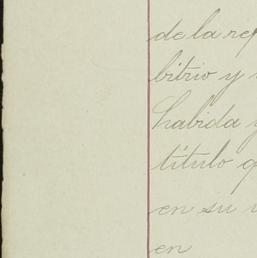 de la re
bitrio y
habida y
título
en su
en